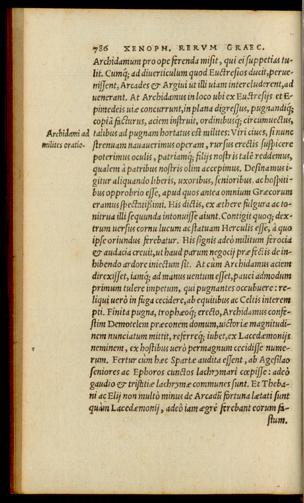 786 XENOPH. RERVM GRAEC.
Archidamum pro ope ferenda misit, qui ei suppetias tu-
lit. Cumq; ad diuerticulum quod Euctresios ducit, perue-
nissent, Arcades & Argiui ut illi uiam intercluderent, ad
uenerant. At Archidamus in loco ubi ex Euctresijs et E-
pinedeis uiæ concurrunt, in plana degressus, pugnandiq;
copiã facturus, aciem instruit, ordinibusq; circumuectus,
Archidami ad
milites oratio.
talibus ad pugnam hortatus est milites: Viri ciues, si nunc
strenuam nauauerimus operam, rursus erectis suspicere
poterimus oculis, patriamq; filijs nostris talẽ reddemus,
qualem à patribus nostris olim accepimus. Desinamus i-
gitur aliquando liberis, uxoribus, senioribus ac hospiti-
bus opprobrio esse, apud quos antea omnium Græcorum
eramus spectatißimi. His dictis, ex æthere fulgura ac to-
nitrua illi sequunda intonuisse aiunt. Contigit quoq; dex-
trum uersus cornu lucum ac statuam Herculis esse, à quo
ipse oriundus ferebatur. His signis adeò militum ferocia
& audacia creuit, ut haud parum negocij præfectis de in-
hibendo ardore iniectum sit. At cùm Archidamus aciem
direxisset, iamq; ad manus uentum esset, pauci admodum
primum tulere impetum, qui pugnantes occubuere: re-
liqui uerò in fuga cecidere, ab equitibus ac Celtis interem
pti. Finita pugna, trophæoq; erecto, Archidamus confe-
stim Demotelem præconem domum, uictoriæ magnitudi-
nem nunciatum mittit, referreq; iubet, ex Lacedæmonijs
neminem, ex hostibus uerò permagnum cecidisse nume-
rum. Fertur cùm hæc Spartæ audita essent, ab Agesilao
seniores ac Ephoros cunctos lachrymari cœpisse: adeò
gaudio & tristitiæ lachrymæ communes sunt. Et Theba-
ni ac Elij non multò minus de Arcadũ fortuna lætati sunt
quàm Lacedæmonij, adeò iam ægrè ferebant eorum fa-
stum.